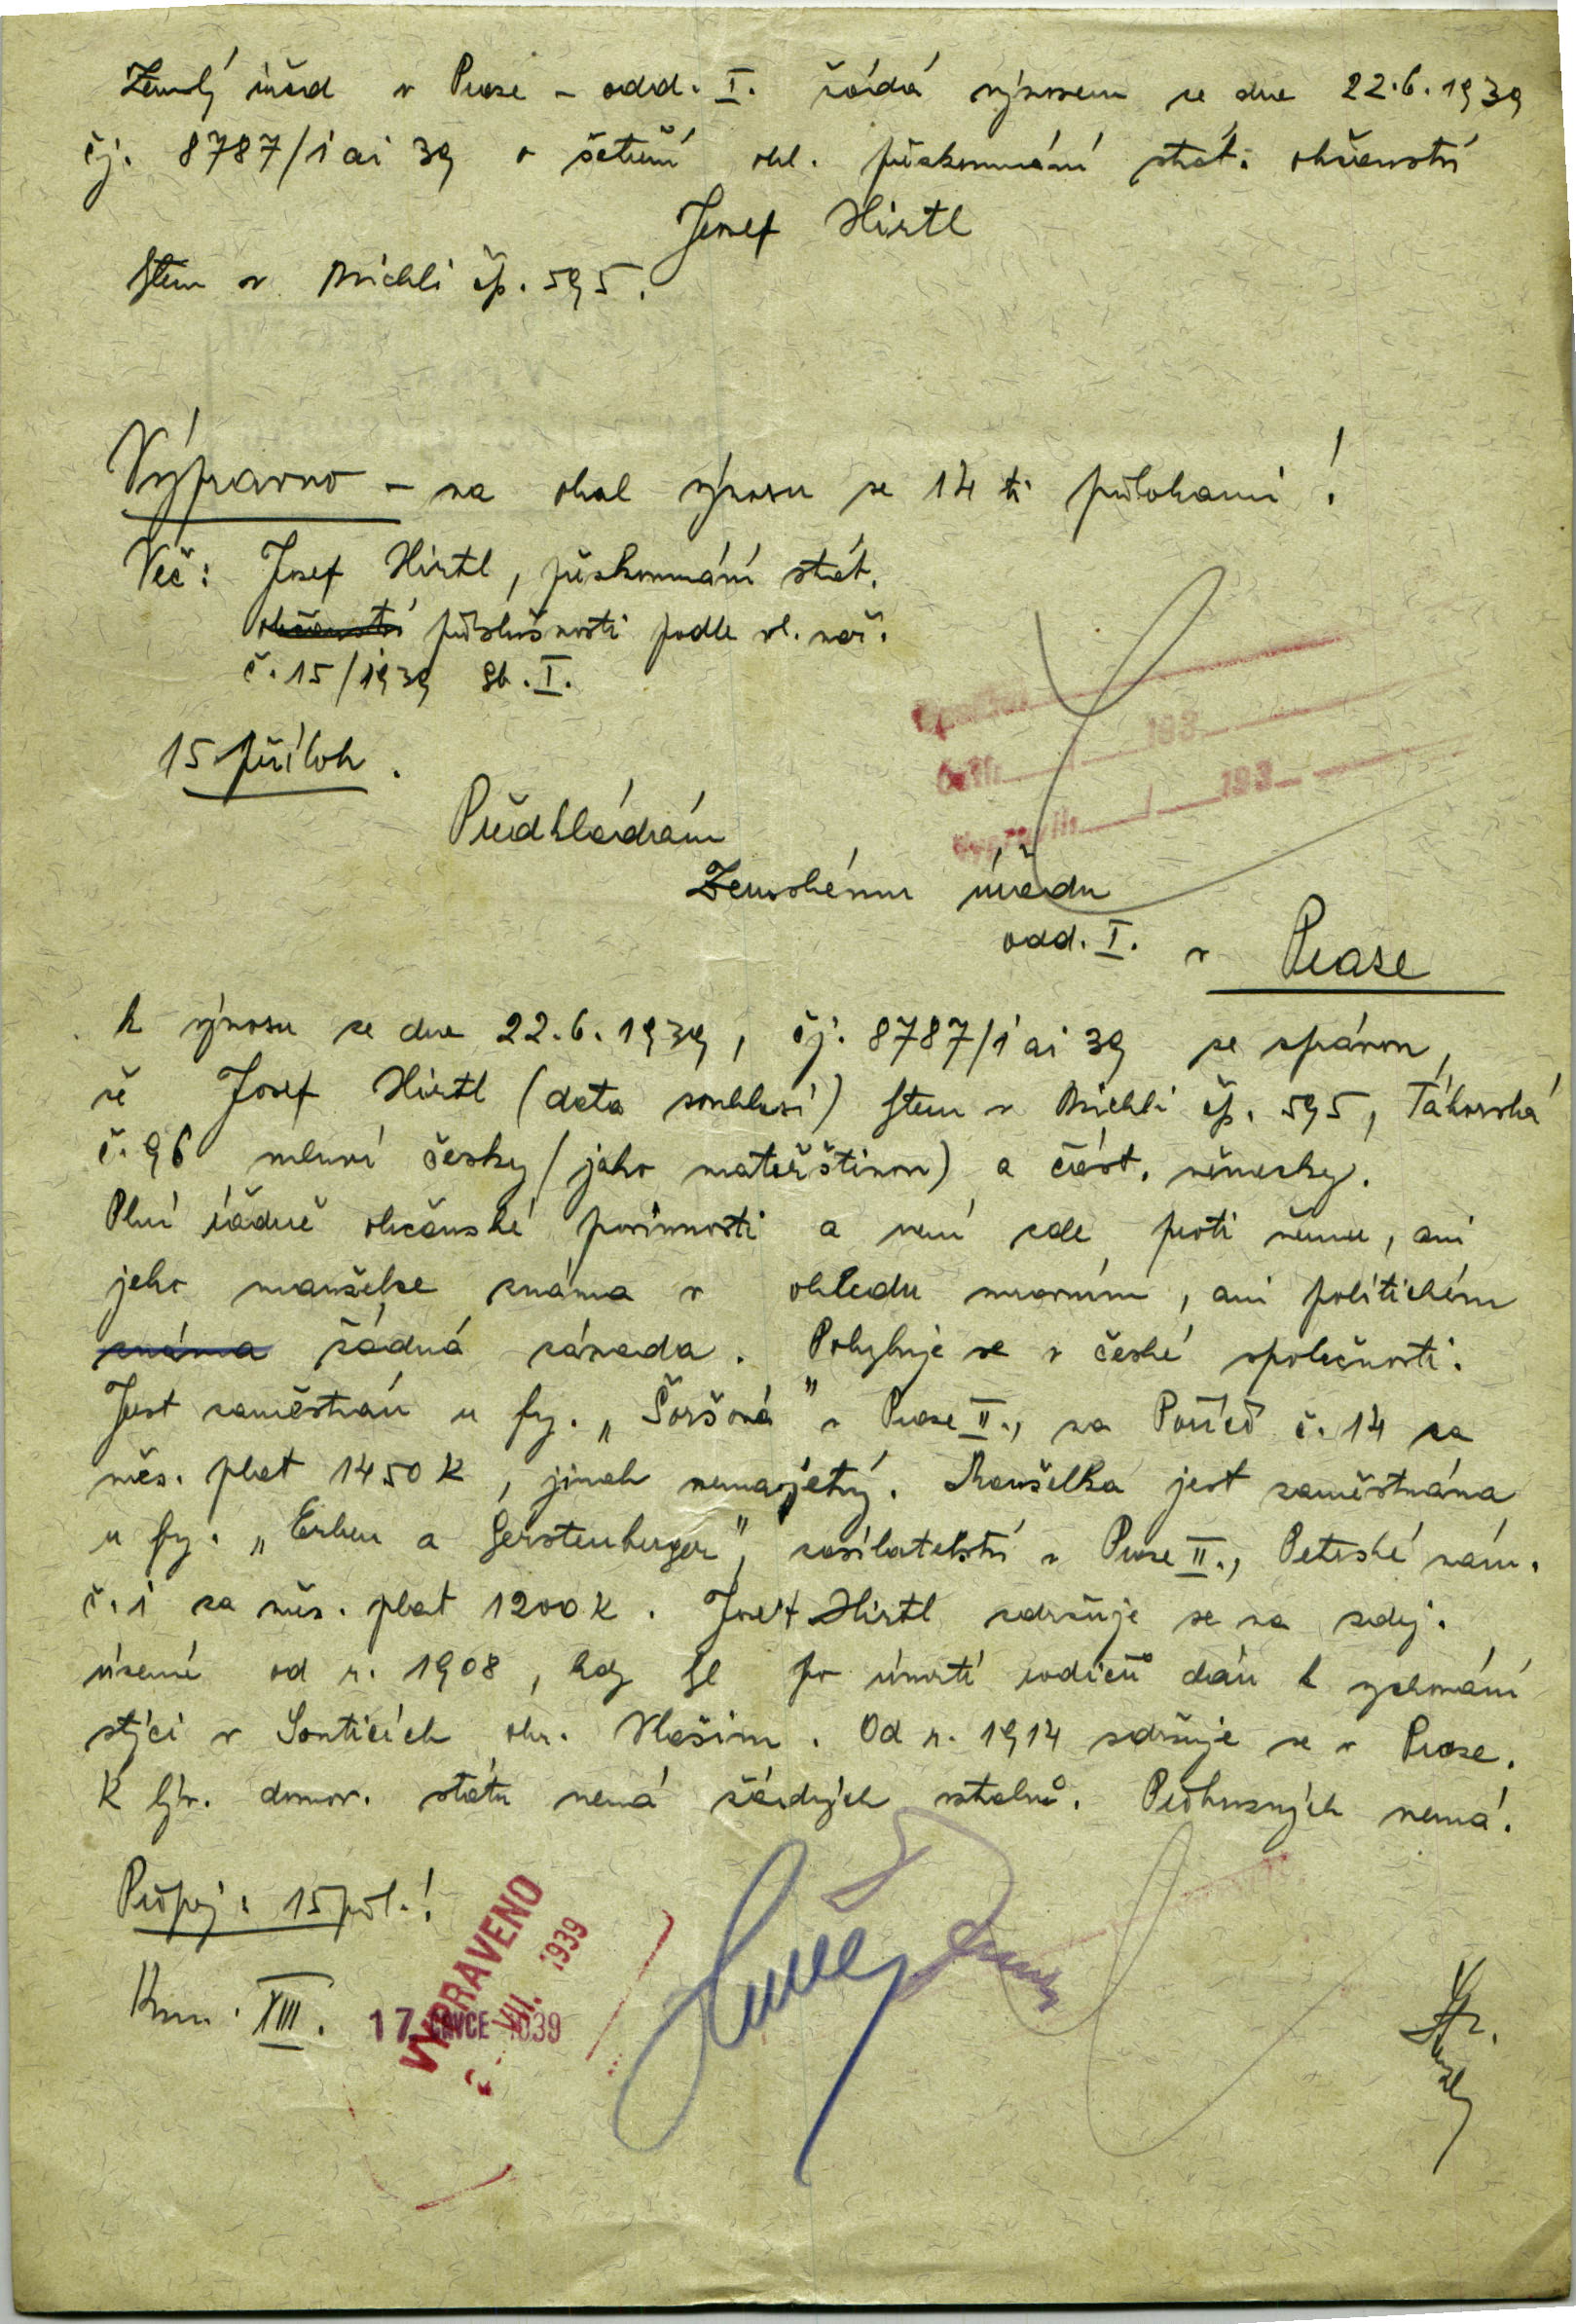 Zemský úřad v Praze – odd. I. žádá výnosem ze dne 22.6.1939
čj. 8787/1 ai 39 o šetření ohl. přezkoumání stát. občanství
Josef Hirtl
bytem v Michli čp. 595.
Výpravno – na obal výnosu se 14 ti přílohami!
Věc: Josef Hirtl, přezkoumání stát.
občanství příslušnosti podle vl. nař.
č. 15/1939 Sb. I.
15 příloh.
Předkládám
Zemskému úřadu
odd. I. v Praze
193
193
k výnosu ze dne 22.6.1939, čj. 8787/1 ai 39 se zprávou,
že Josef Hirtl (data souhlasí) bytem v Michli čp. 595, Táborská
č. 96 mluví česky (jeho mateřštinou) a část. německy.
Plní řádně občanské povinnosti a není zde proti němu, ani
jeho manželce známa v ohledu mravním, ani politickém
známa žádná závada. Pohybuje se v české společnosti.
Jest zaměstnán u fy. „Šoršová" v Praze II., na Poříčí č. 14 za
měs. plat 1450 K, jinak nemajetný. Manželka jest zaměstnána
u fy. „Erben a Gerstenberger", zasilatelství v Praze II., Petrské nám.
č. 1 za měs. plat 1200 K. Josef Hirtl zdržuje se na zdej.
území od r. 1908, kdy byl po úmrtí rodičů dán k vychování
strýci v Souticích okr. Vlašim. Od r. 1914 zdržuje se v Praze.
K býv. domov. státu nemá žádných vztahů. Příbuzných nemá.
Připoj: 15 příl.!
Kom. XIII.
VYPRAVENO
VII. 1939
17. ČERVENCE 1939